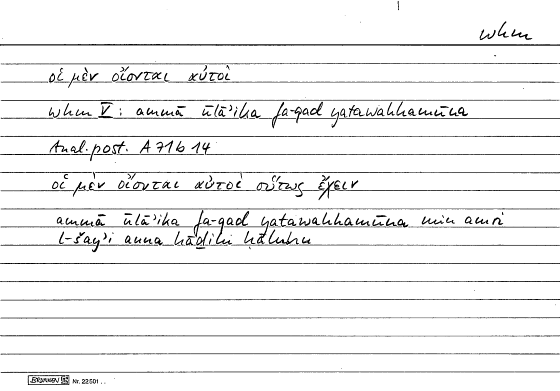 whm
οἱ μὲν οἴονται αὐτοὶ
whm V: ammā ūlāʾika fa-qad yatawahhamūna
Anal. post. A 71 b 14
οἱ μὲν οἴονται αὐτοὶ οὕτως ἔχειν
ammā ūlāʾika fa-qad yatawahhamūna min amri
l-šayʾi anna hāḏihi ḥāluhu
BRUNNEN Nr. 22501 ..